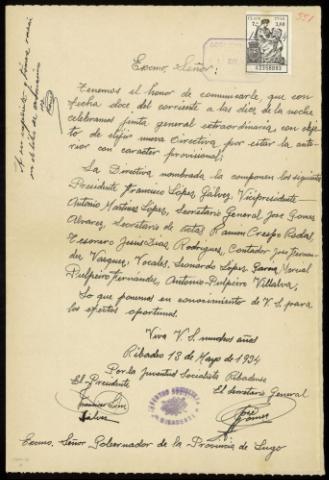 331
CLASE 7ª
3,00
Excmo. Señor:
Tenemos el honor de comunicarle, que con
fecha doce del corriente a las diez de la noche
celebramos junta general extraordinaria, con obje-
to de elejir nueva Directiva por estar la ante-
rior con caracter provisional;
La Directiva nombrada la componen los siguientes
Presidente Francisco Lopez Galvez, Vicepresidente
Antonio Martinez López, Secretario General José Gomez
Alvarez, Secretario de Actas Ramón Crespo Badal,
Tesorero Jesus Diaz Rodriguez, Contador José Fernan-
dez Vazquez, Vocales, Leonardo López Garcia, Manuel
Pulpeiro Fernández, Antonio Pulpeiro Villalva,
Lo que ponemos en conocimiento de V. S. para
los efectos oportunos.
Viva V. S. muchos años
Ribadeo 13 de Mayo de 1934
Por la Juventud Socialista Ribadense
El Presidente
El Secretario General
Galvez
José Gomez
JUVENTUD SOCIALISTA
Excmo. Señor Gobernador de la Provincia de Lugo